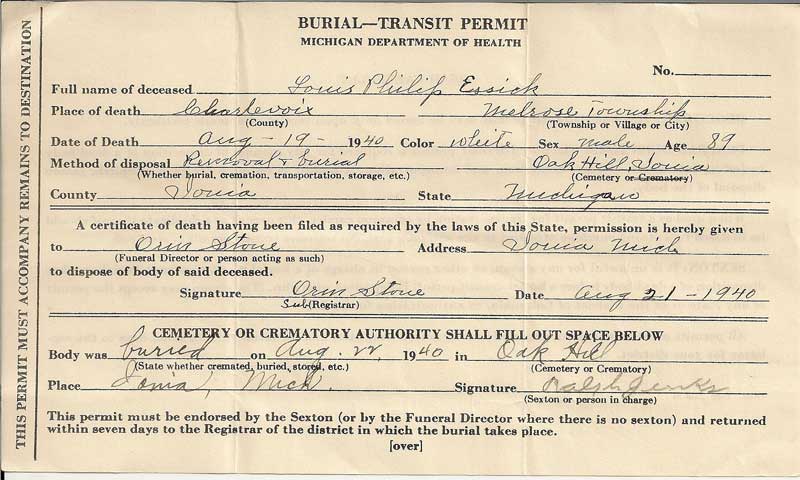 BURIAL—TRANSIT PERMIT
MICHIGAN DEPARTMENT OF HEALTH
No.
Full name of deceased Louis Philip Essick
Place of death Charlevoix Melrose Township
(County) (Township or Village or City)
Date of Death Aug-19- 1940 Color white Sex male Age 89
Method of disposal Removal & burial Oak Hill, Ionia
(Whether burial, cremation, transportation, storage, etc.) (Cemetery or Crematory)
County Ionia State Michigan
A certificate of death having been filed as required by the laws of this State, permission is hereby given
to Orin Stone Address Ionia Mich
(Funeral Director or person acting as such)
to dispose of body of said deceased.
Signature Orin Stone Date Aug 21-1940
Sub (Registrar)
CEMETERY OR CREMATORY AUTHORITY SHALL FILL OUT SPACE BELOW
Body was buried on Aug. 22, 1940 in Oak Hill
(State whether cremated, buried, stored, etc.) (Cemetery or Crematory)
Place Ionia, Mich. Signature Ralph Jenks
(Sexton or person in charge)
This permit must be endorsed by the Sexton (or by the Funeral Director where there is no sexton) and returned
within seven days to the Registrar of the district in which the burial takes place.
[over]
THIS PERMIT MUST ACCOMPANY REMAINS TO DESTINATION